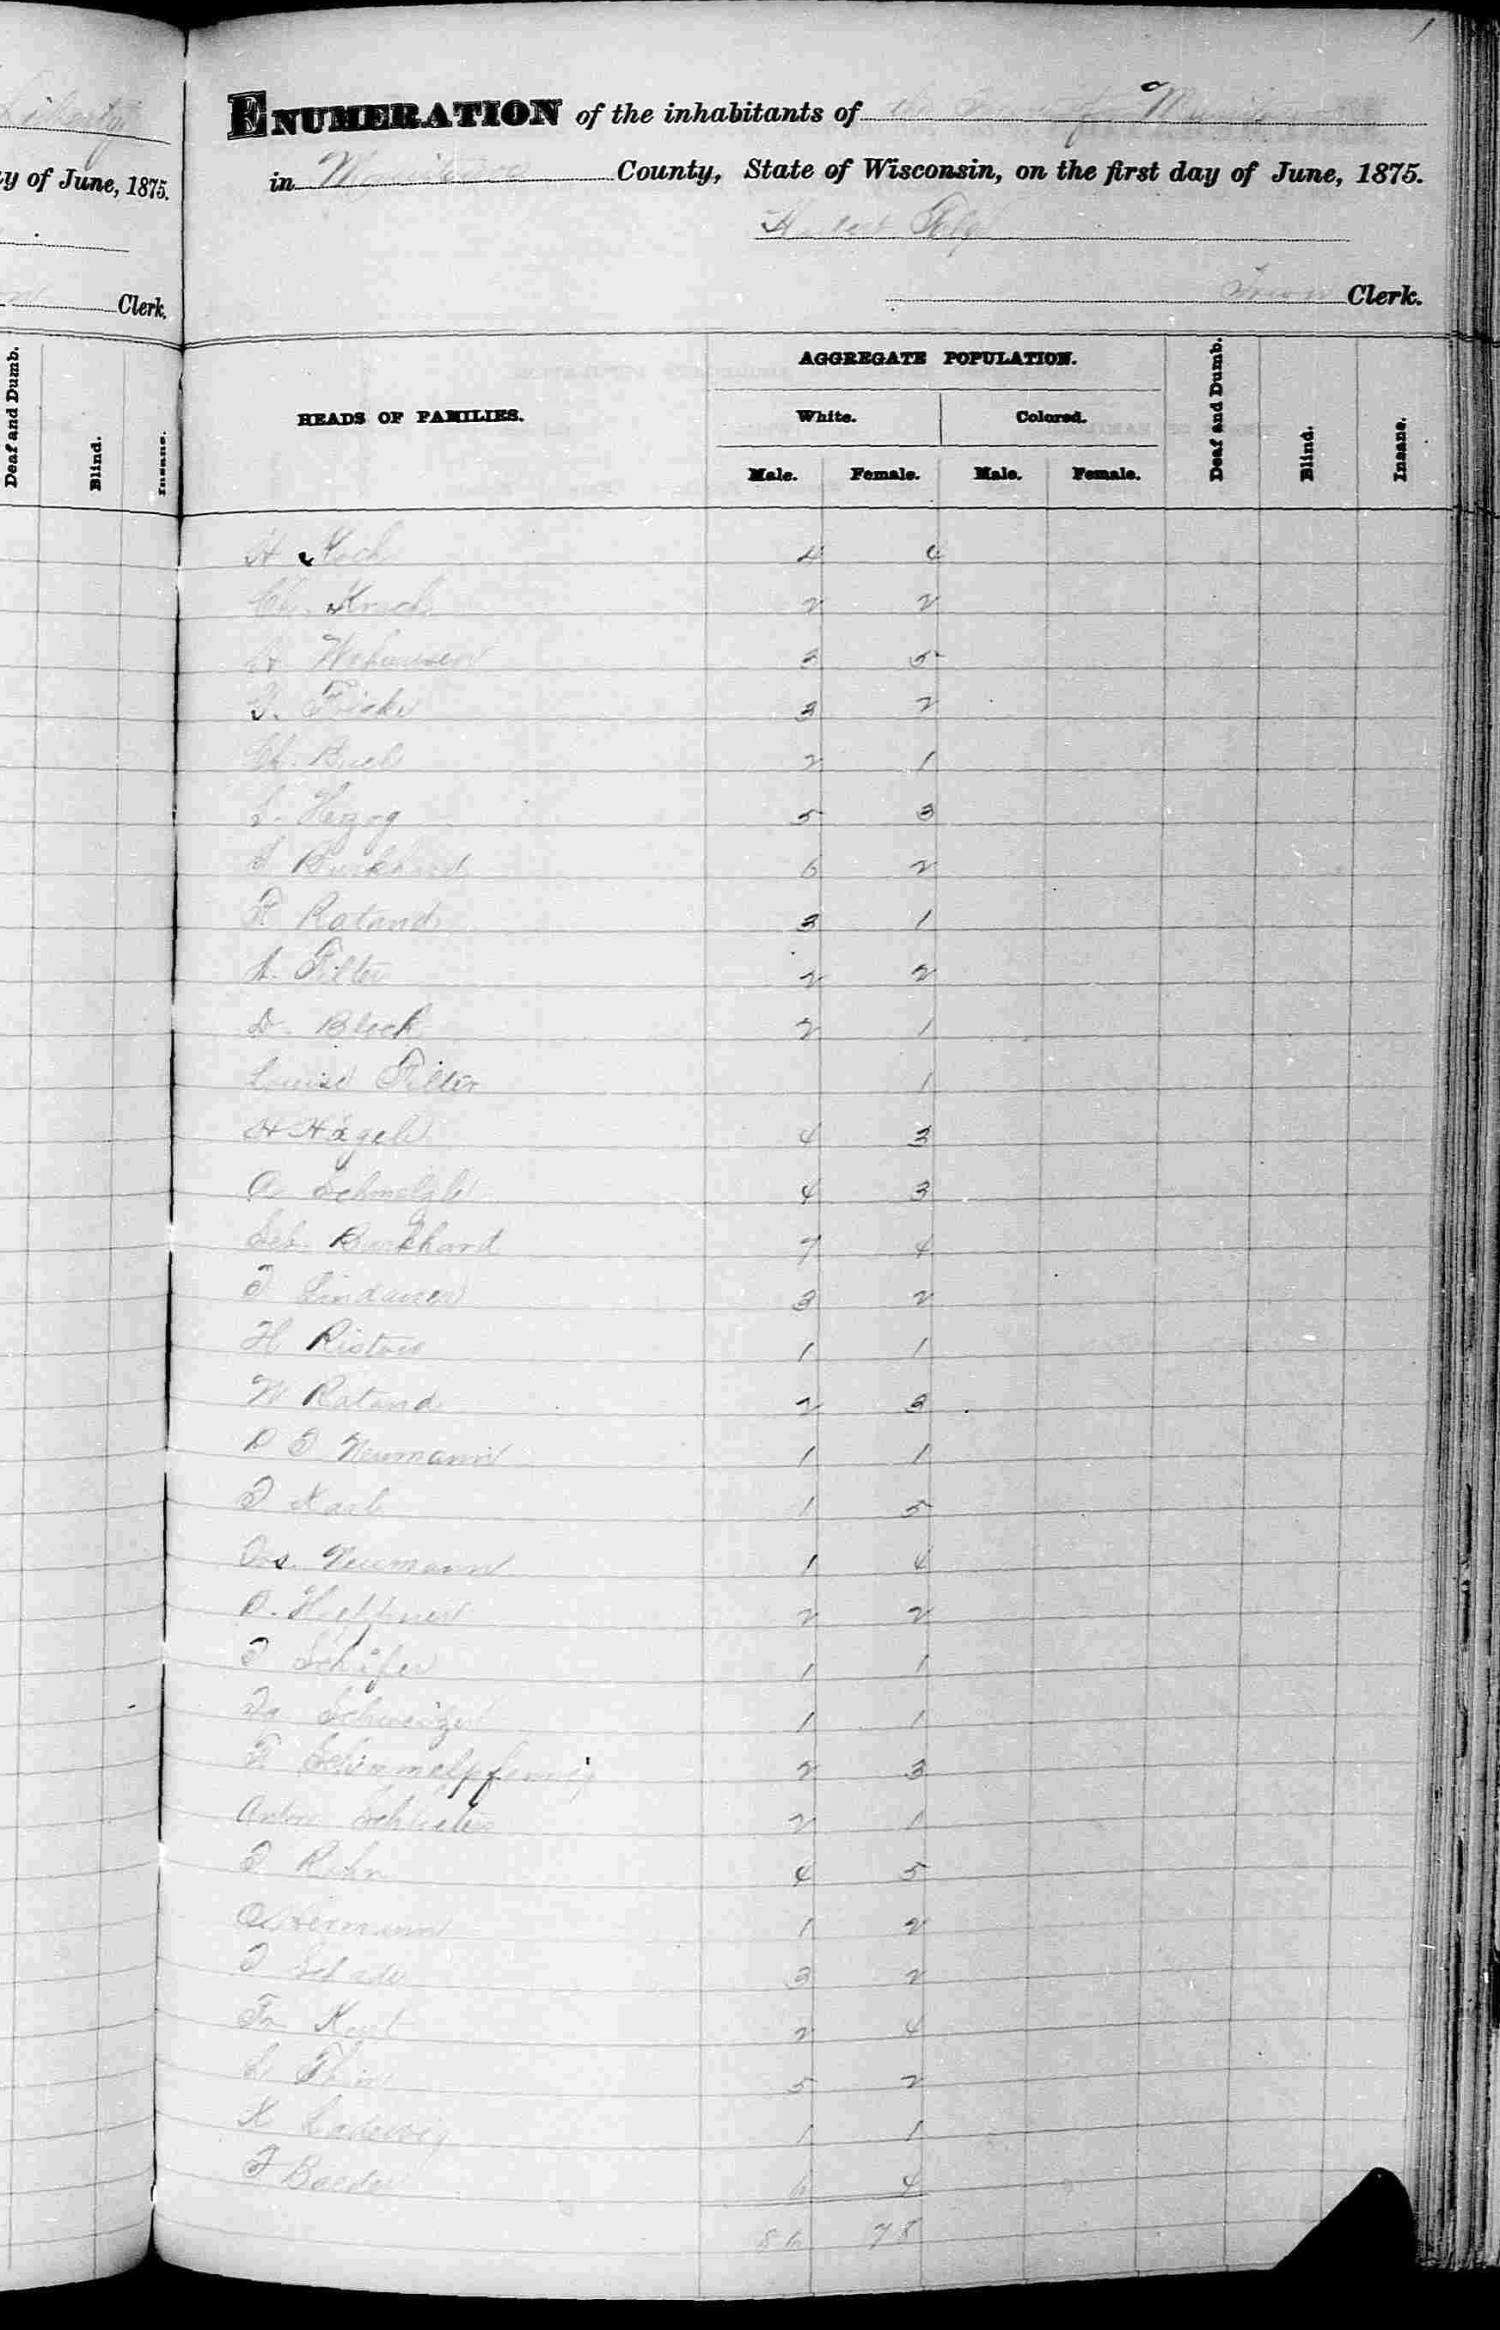 1
Liberty
y of June, 1875.
Clerk.
Deaf and Dumb. Blind. Insane.
ENUMERATION of the inhabitants of the Town of Manitowoc
in Manitowoc County, State of Wisconsin, on the first day of June, 1875.
Town Clerk.
HEADS OF FAMILIES. AGGREGATE POPULATION. Deaf and Dumb. Blind. Insane.
White. Colored.
Male. Female. Male. Female.
H Koch 4 4
Ch. Krach 2 2
3 5
Fricke 3 2
Ch. Buel 2 1
L. Herzog 5 3
Burkhard 6 2
F Ratand 3 1
A. Filter 2 2
D. Block 2 1
Louise Filter 1
H Hägele 4 3
A Schmelzle 4 3
Seb. Burkhard 7 4
J Lindauer 3 2
H Ristow 1 1
W Ratand 2 3
P J Neumann 1 1
J Karl 1 5
Neumann 1 4
P. Hoeffner 2 2
J Schäfer 1 1
Schweizer 1 1
F. Schimmelpfennig 2 3
Anton Schlueter 2 1
J Rahn 4 5
1 2
J Schade 3 2
Fr 2 4
5 2
K Ladewig 1 1
J Baede 6 4
86 78